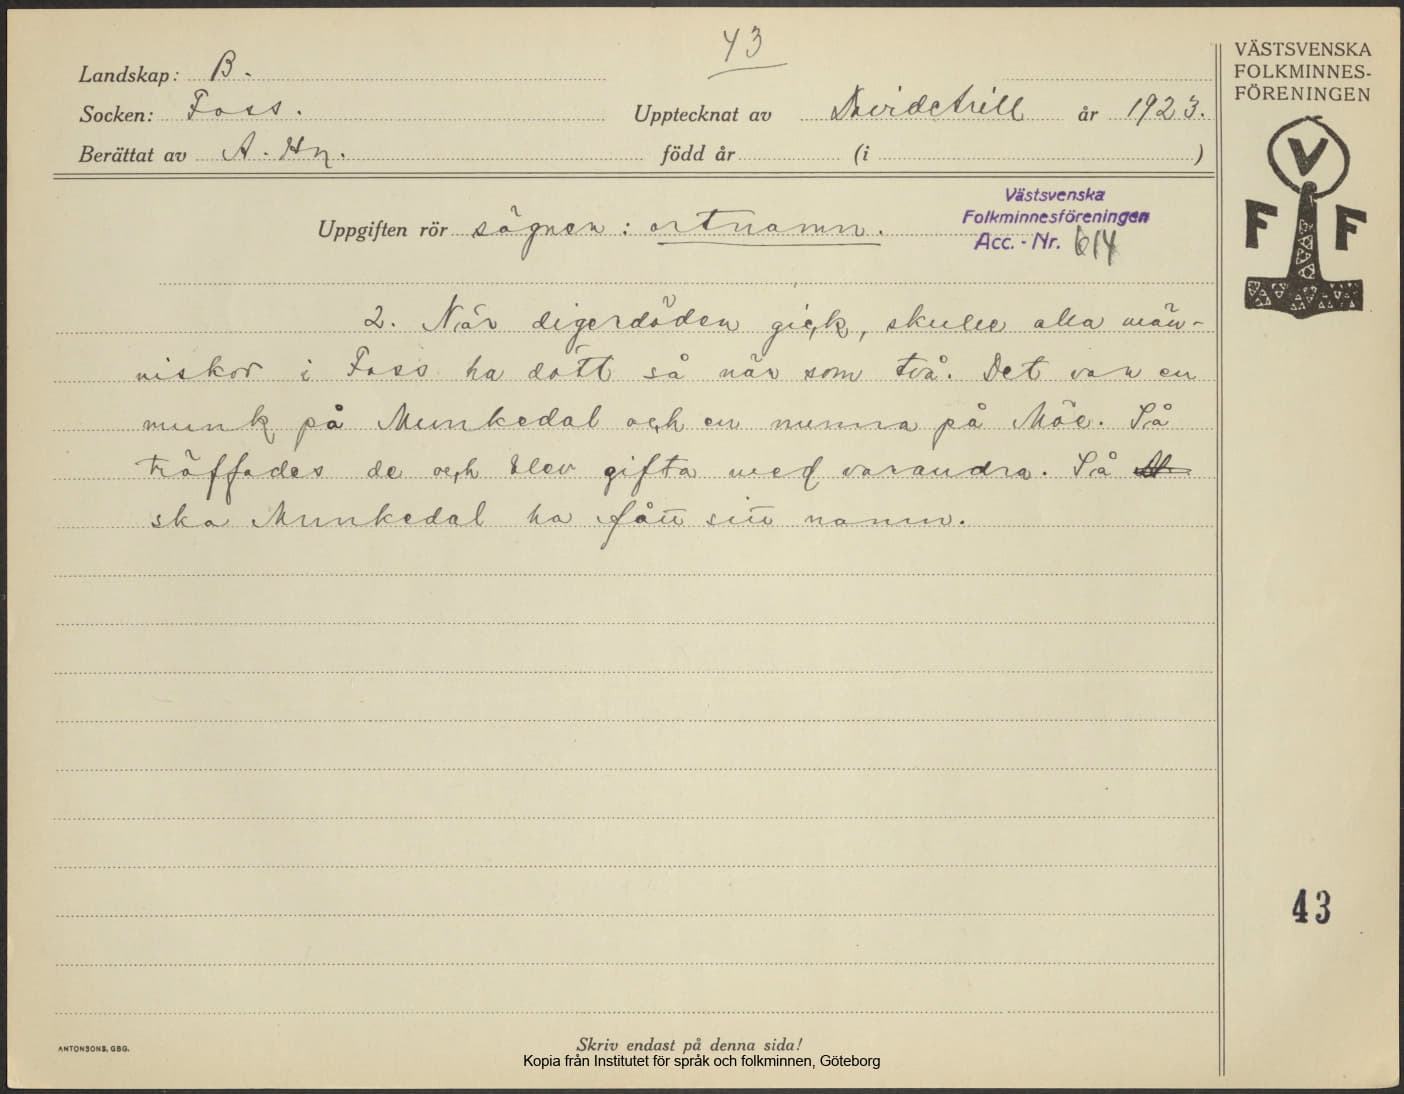 43
VÄSTSVENSKA
FOLKMINNES-
FÖRENINGEN
Landskap: B.
Socken: Foss. Upptecknat av år 1923.
Berättat av A. Hn. född år (i )
Västsvenska
Folkminnesföreningen
Acc. - Nr. 614
Uppgiften rör sägnen: ortnamn.
V
F F
2. När digerdöden gick, skulle alla män-
niskor i Foss ha dött så när som två. Det var en
munk på Munkedal och en nunna på Möe. Så
träffades de och blev gifta med varandra. Så
ska Munkedal ha fått sitt namn.
43
ANTONSONS, GBG.
Skriv endast på denna sida!
Kopia från Institutet för språk och folkminnen, Göteborg